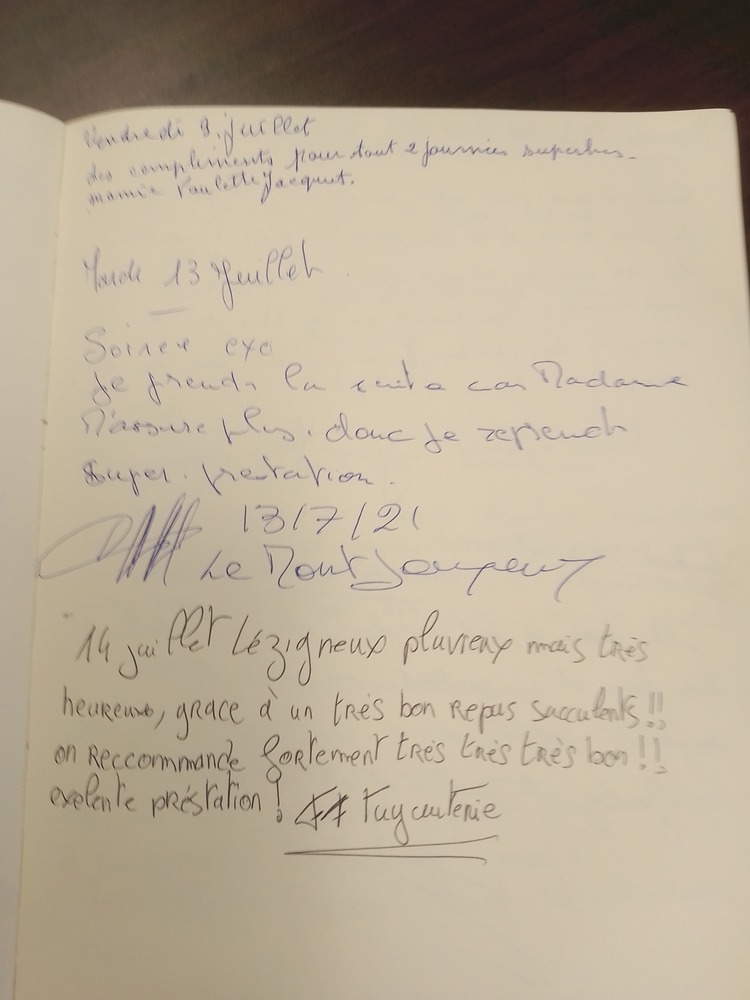 Vendredi 9 juillet
des compliments pour tout 2 journées superbes.
mamie Paulette Jacquet.
Mardi 13 Juillet
Soiree exc
Je prends la suite car Madame
N'assure plus. donc je reprends
super. prestation.
13/7/21
Le Mont
14 juillet Lézigneux pluvieux mais très
heureux, grace à un très bon Repas succulents!!
on Reccommande fortement très très très bon!!
exelente préstation! Tuyauterie